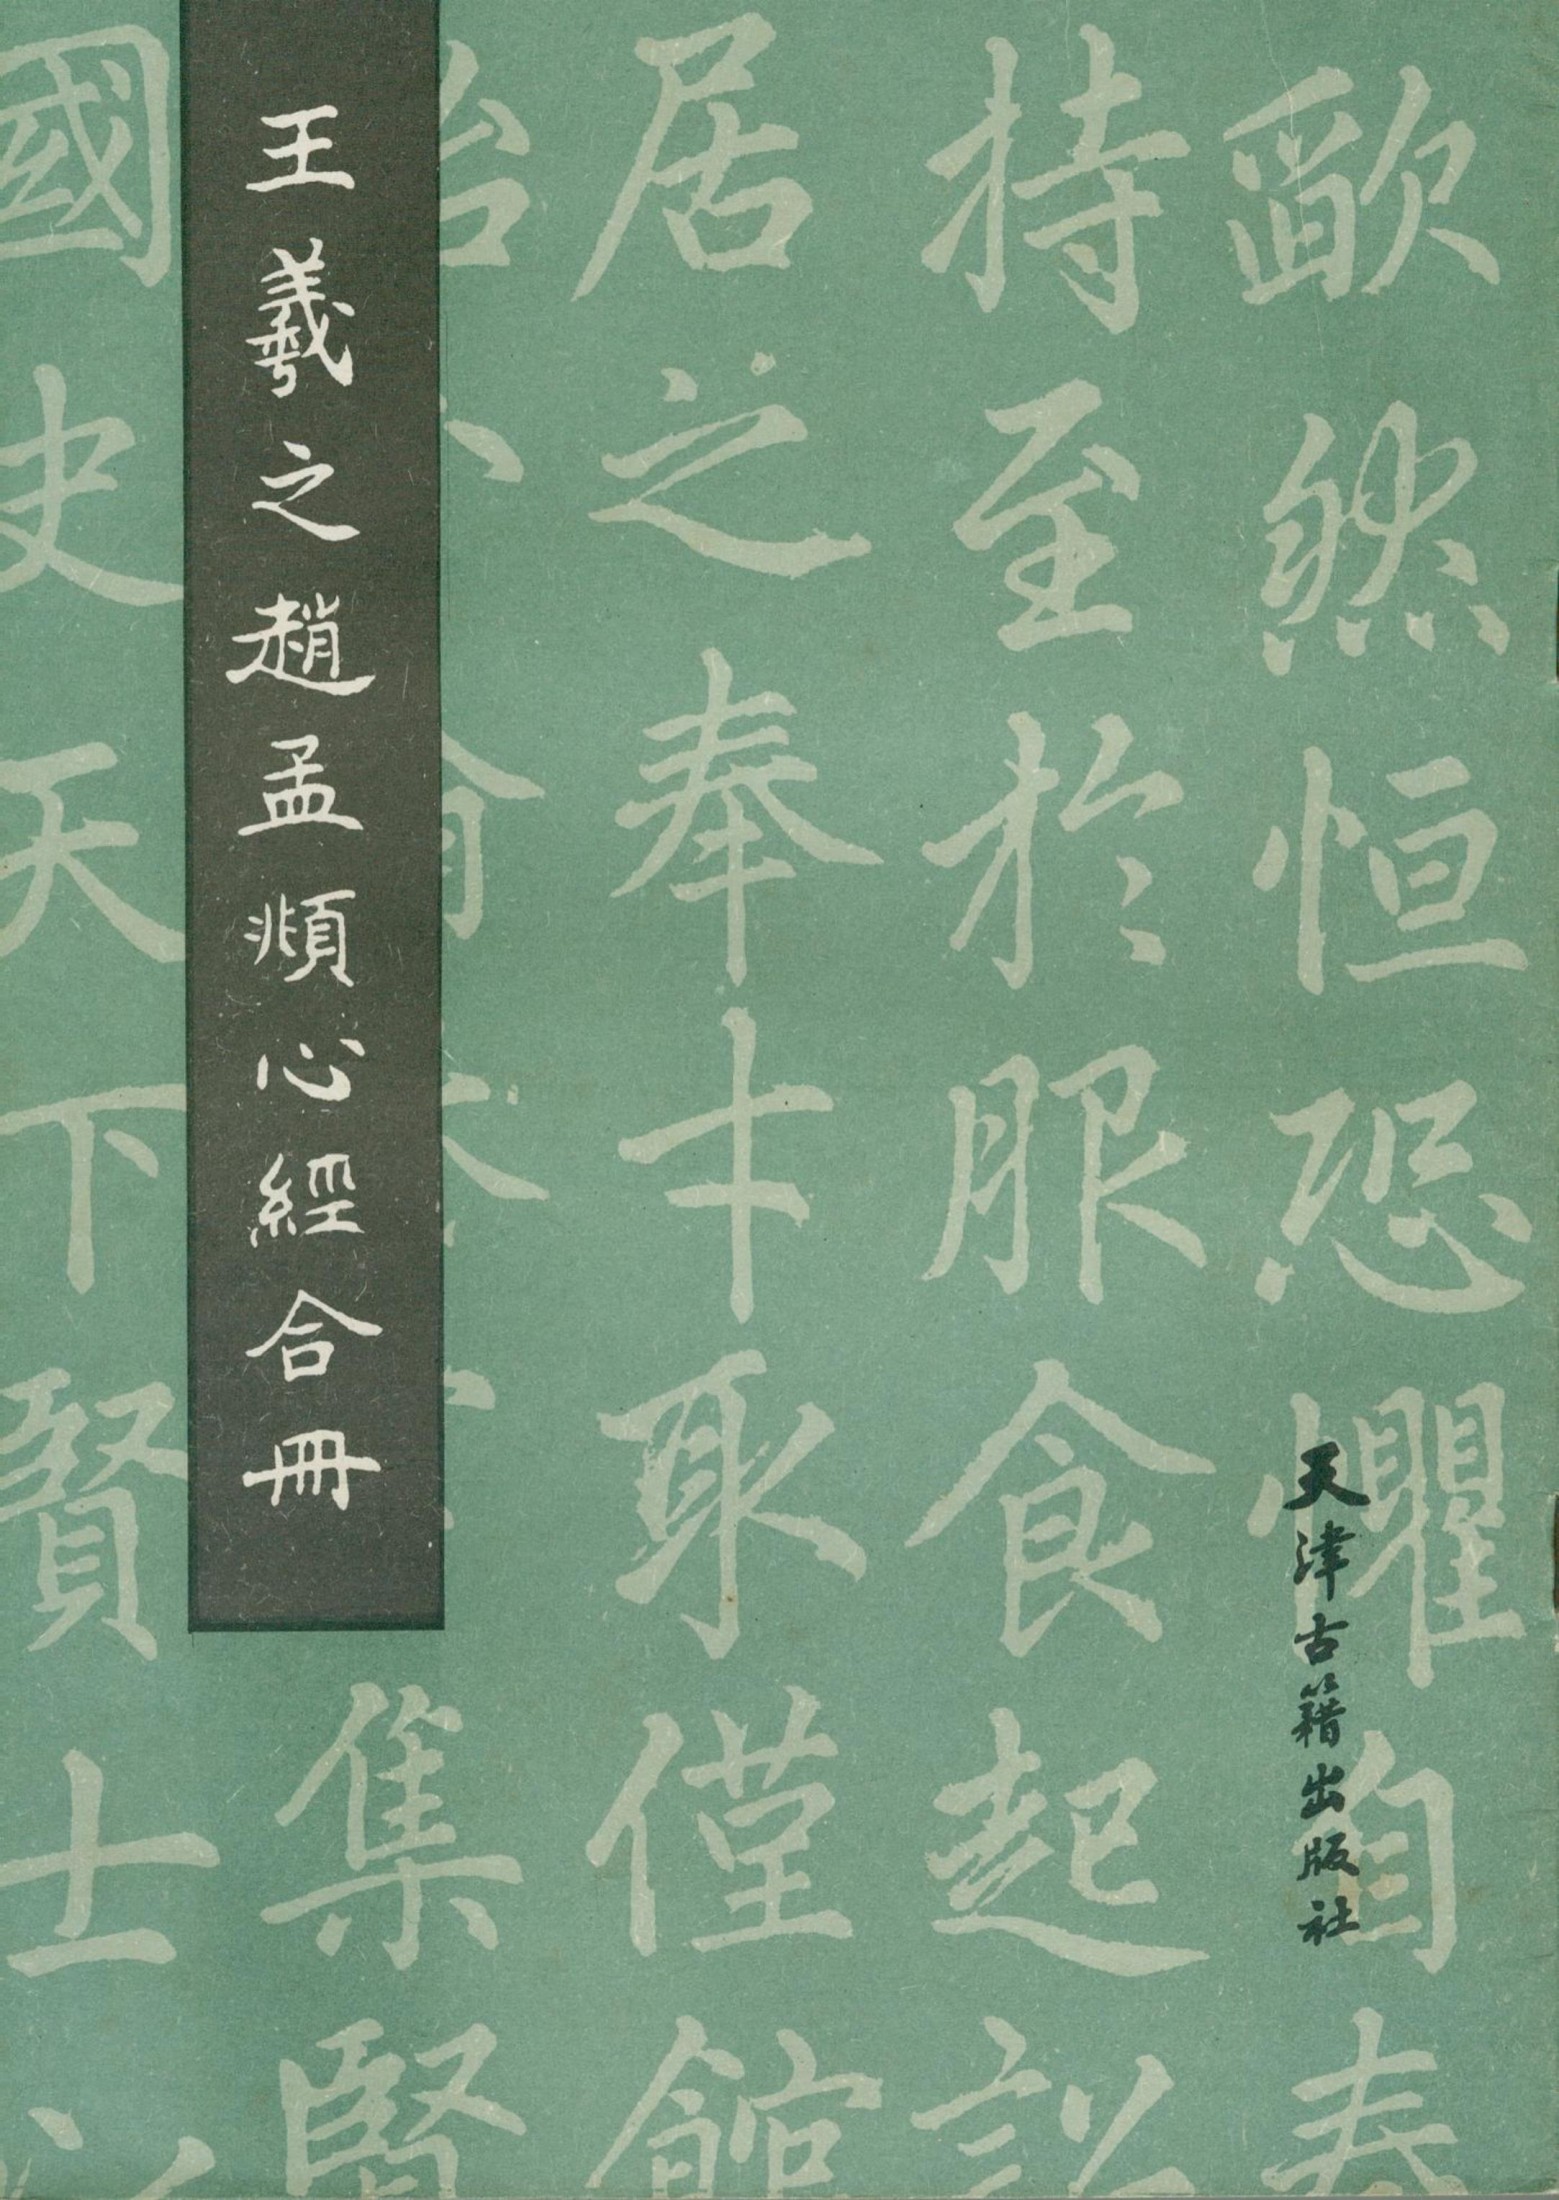 王羲之趙孟頫心經合冊
天津古籍出版社
欿然恒恐懼自奉
持至於服食起
居之奉十取僅館
集賢
國史天下賢士